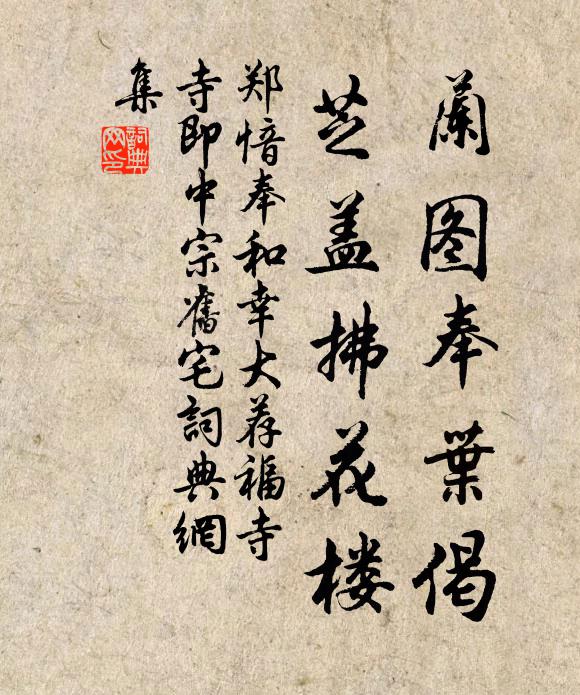 蘭图奉葉偈
芝盖拂花楼
郑愔奉和幸大荐福寺
寺即中宗舊宅詞典網
集
詞典网印